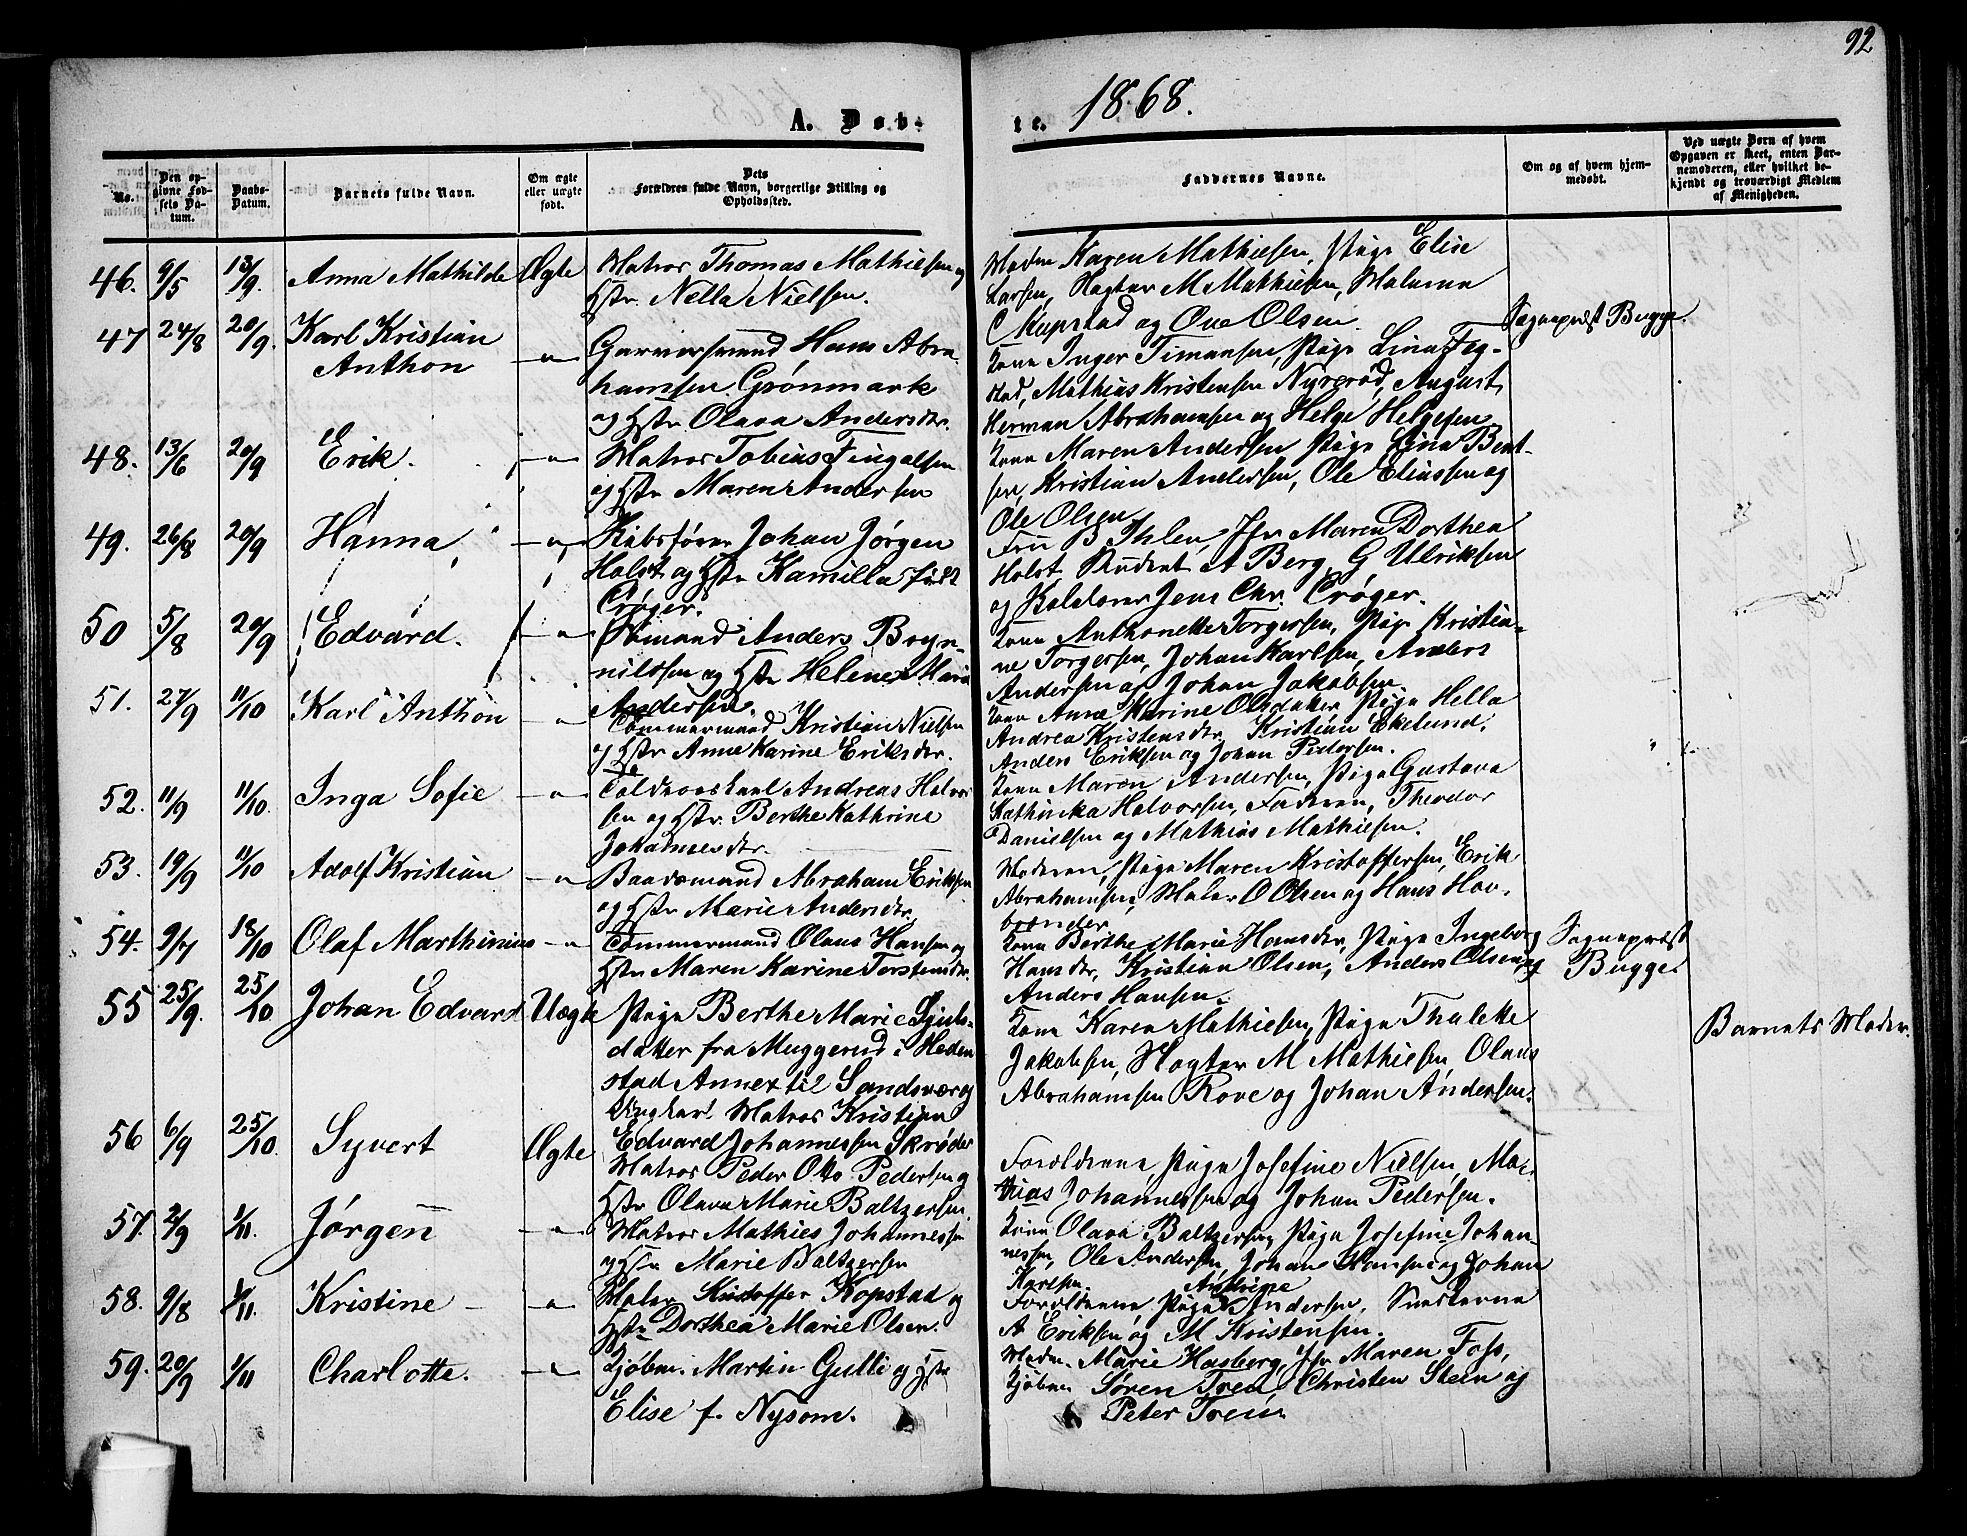 92
A. Døb-
te. 1868.
No.
Den op-
givne Fød-
sels Da-
tum.
Daabs-
Datum.
Barnets fulde Navn.
Om ægte
eller uægte
født.
Dets
Forældres fulde Navn, borgerlige Stilling og
Opholdssted.
Faddernes Navne.
Om og af hvem hjem-
medøbt.
Ved uægte Børn af hvem
Opgaven er skeet, enten Bar-
nemoderen, eller hvilket be-
kjendt og troværdigt Medlem
af Menigheden.
46. 9/5 13/9. Anna Mathilde Ægte Matros Thomas Mathiesen og
Hstr. Nella Nielsen.
Karen Mathiesen, Pige Elise
Larsen, M Mathiesen,
og Ove Olsen.
47 24/8 20/9. Karl Kristian
Anthon
-"- Garversvend Hans Abra-
hamsen Grønmark
og Hstr. Olava Andersdtr.
Sognepræst Bugge.
Kone Inger Timansen, Pige Lina Feg-
stad, Mathias Kristensen Nyrerød, August
Herman Abrahamsen og Helge Helgesen
48. 13/6 20/9 Erik. -"- Matros Tobias Fingalsen
og Hstr Maren Andersen
Kone Maren Andersen Pige Lina Bent-
sen, Kristian Andersen, Ole Eliassen og
Ole Olsen
49. 26/8 20/9 Hanna, -"- Skibsfører Johan Jørgen
Holst og Hstr Kamilla født
Crøger.
Fru B Ihlen, Jfr Maren Dorthea
Holst Student A Berg, G Ulriksen
og Jens Chr. Crøger.
50 5/8 20/9 Edvard. -"- Sømand Anders Bryn-
nilssen og Hstr Helene Marie
Andersen.
Kone Anthonette Torgersen, Pige Kristia-
ne Torgersen, Johan Karlsen, Anders
Andersen og Johan Jakobsen.
51. 27/9 11/10 Karl Anthon -"- Tømmermand Kristian Nielsen
og Hstr Anne Karine Eriksdtr.
Kone Anne Karine Olsdatter, Pige Hella
Andrea Kristensdtr, Kristian Ekelund,
Anders Eriksen og Johan Pedersen.
52. 11/9 11/10. Inga Sofie -"- Andreas Halvor-
sen og Hstr. Berthe Kathrine
Johannesdtr.
Kone Maren Andersen, Pige Gustava
Kathinka Halvorsen, Faderen, Theodor
Danielsen og Mathias Mathiesen.
53. 19/9 11/10 Adolf Kristian -"- Baadsmand Abraham Eriksen
og Hstr Marie Andersdtr.
Moderen, Pige Maren Kristoffersen, Erik
Abrahamsen, O Olsen og Hans Hav-
brænder.
54. 9/7 18/10 Olaf Marthinius -"- Tømmermand Olaus Hansen og
Hstr Maren Karine Torstensdtr.
Kone Berthe Marie Hansdtr, Pige Ingeborg
Hansdtr, Kristian Olsen, Anders Olsen og
Anders Hansen.
Sognepræst
Bugge.
55 25/9. 25/10. Johan Edvard Uægte Pige Berthe Marie
datter fra Muggerud i Heden-
stad Annex til Sandsvær og
Ungkarl Matros Kristian
Edvard Johannessen Skrøder
Kone Karen Mathiesen, Pige Thalette
Jakobsen, M Mathiesen, Olaus
Abrahamsen Rove og Johan Andersen.
Barnets Moder.
56 6/9 25/10. Syvert Ægte Matros Peder Otto Pedersen og
Hstr Olava Marie Baltzersen.
Forældrene, Pige Josefine Nielsen, Ma-
thias Johannessen og Johan Pedersen.
57. 2/9 1/11. Jørgen -"- Matros Mathies Johannessen
og Hstr Marie Baltzersen
Kone Olava Baltzersen, Pige Josefine Johan-
nessen, Ole Andersen, Johan Hansen og Johan
Karlsen.
58. 9/8 1/11. Kristine -"- Maler Kristoffer Kopstad og
Hstr Dorthea Marie Olsen.
Forældrene, Pige Andersen,
A Eriksen og M Kristensen.
59. 20/9 1/11 Charlotte. -"- Kjøbm. Martin Gulli og Hstr
Elise f. Nysom.
Marie Hasberg, Jfr Maren Foss,
Kjøbm Søren Tren, Christen Steen og
Peter Tren